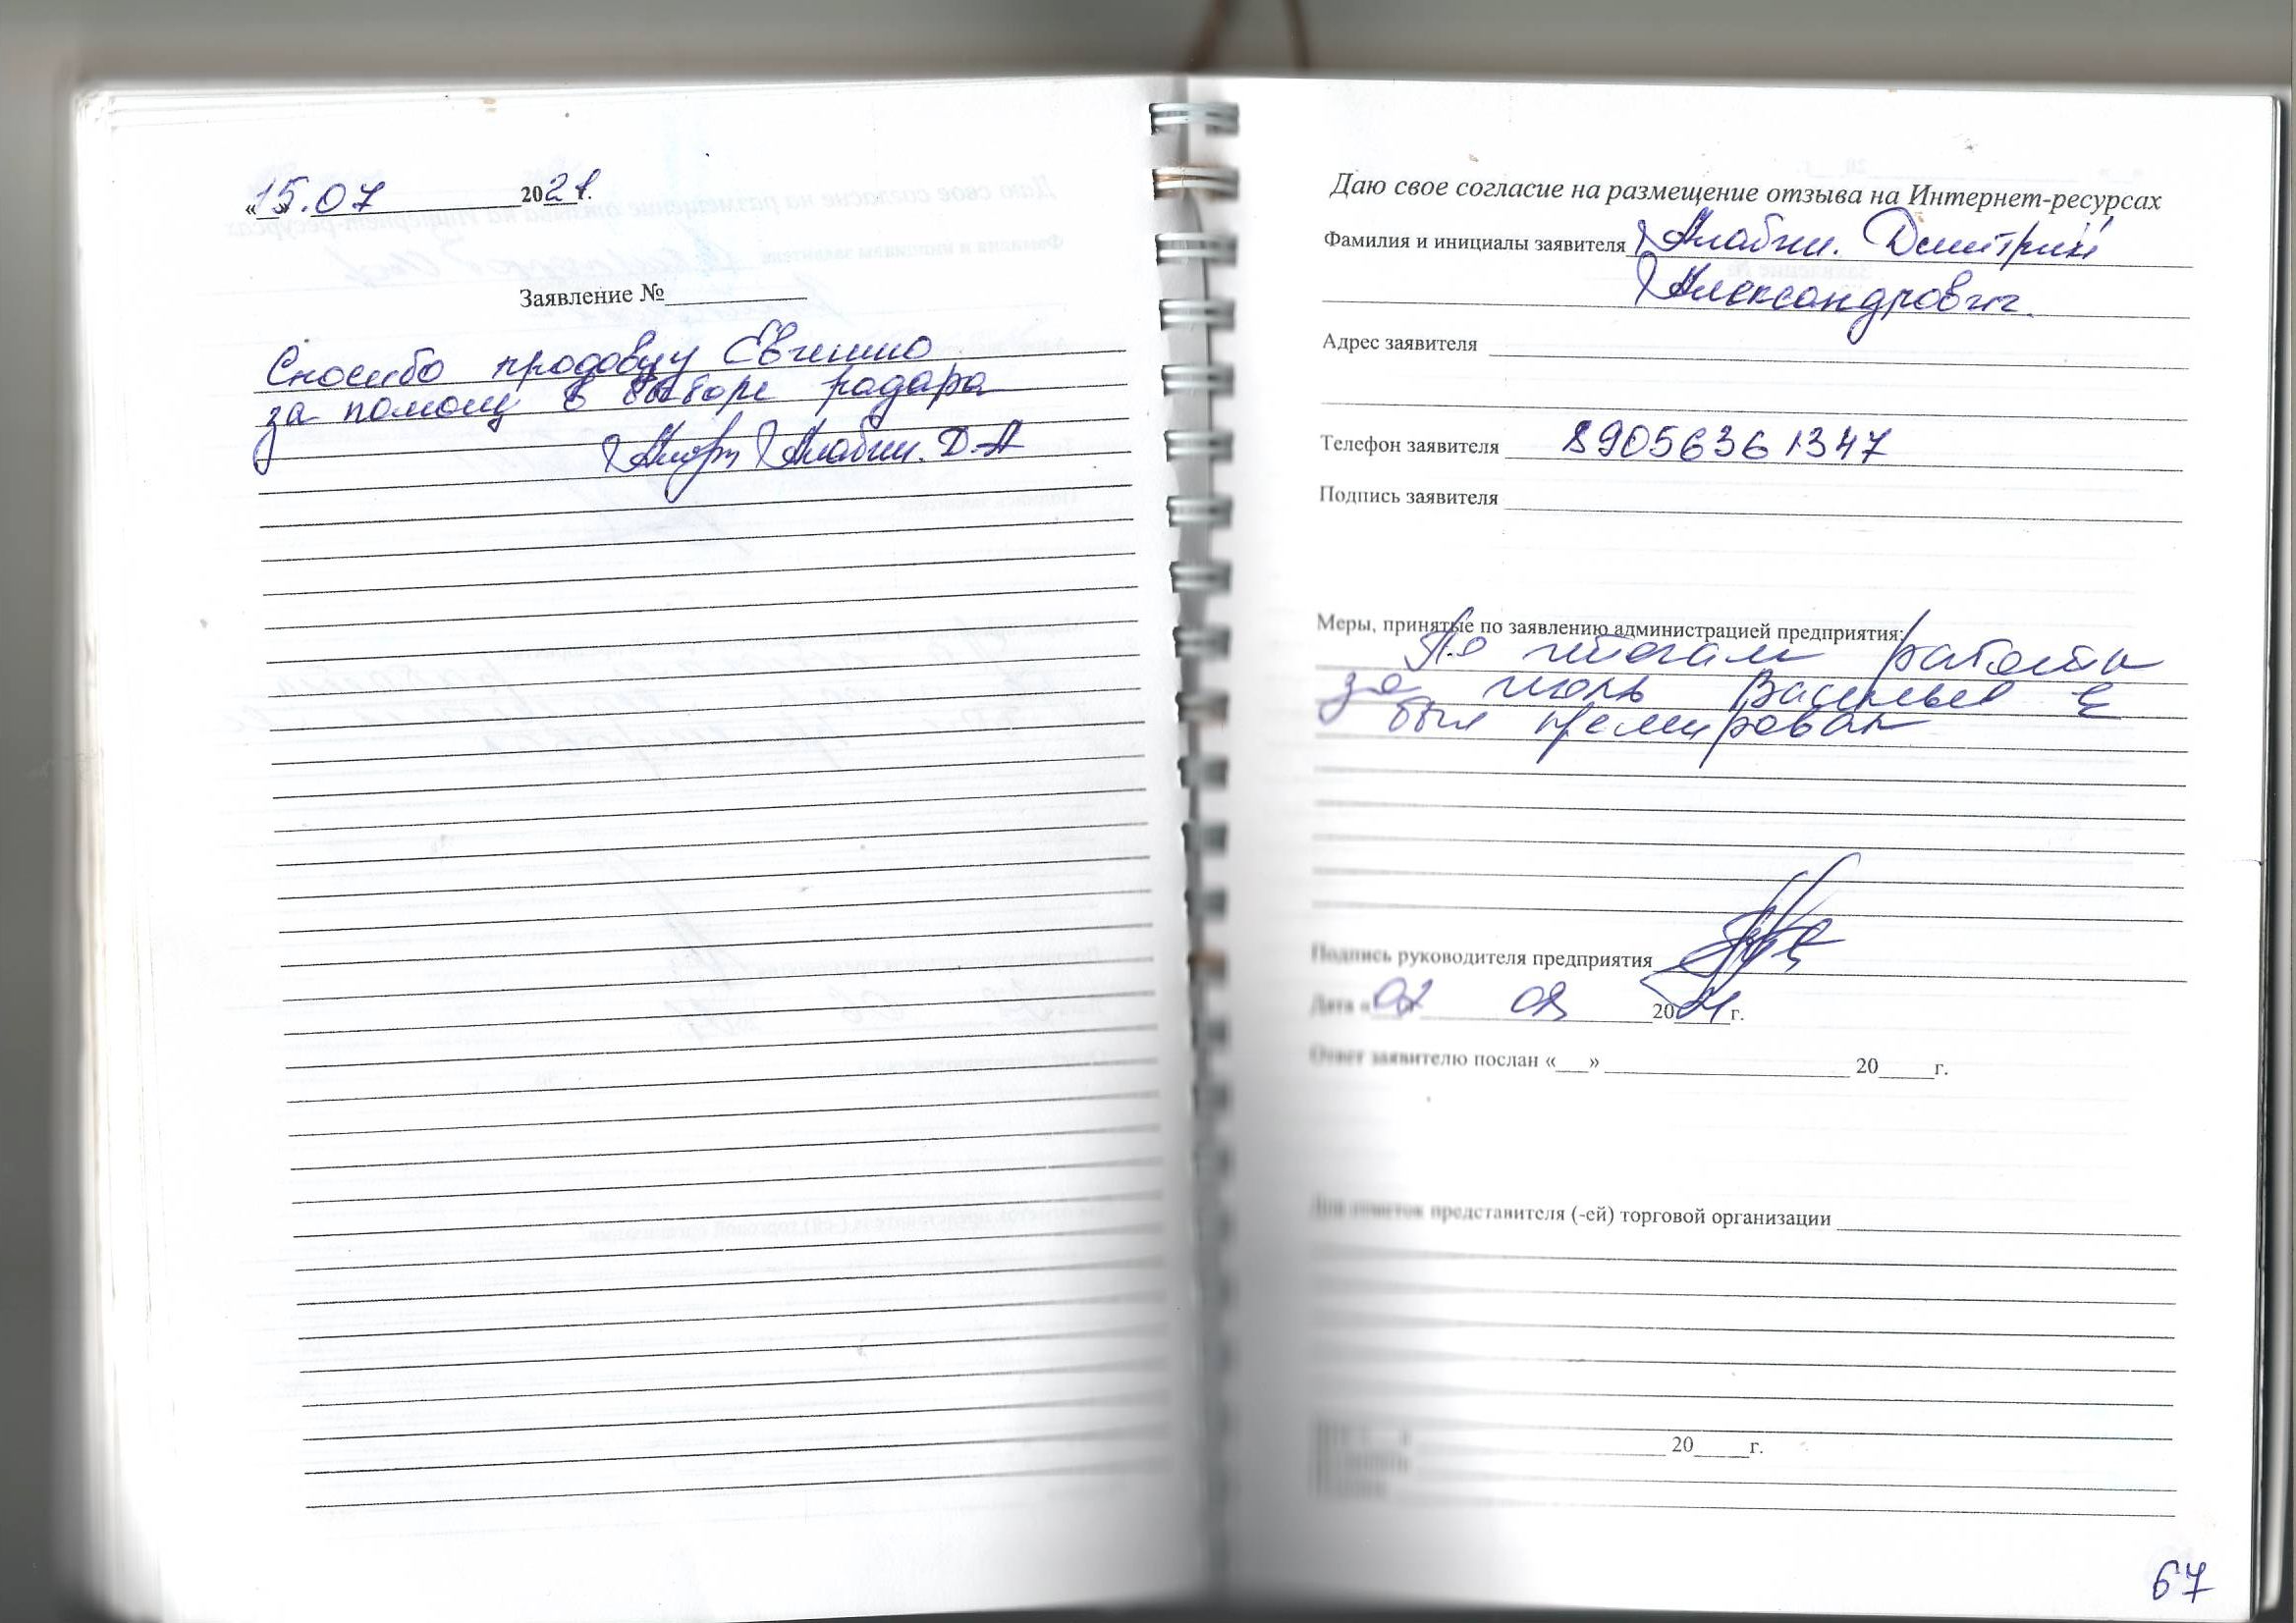 «15».07 2021.
Заявление №
Спосибо продовцу Евгению
за помощ в выборе радара
Алабин. Д.А
Даю свое согласие на размещение отзыва на Интернет-ресурсах
Фамилия и инициалы заявителя Алабин. Дмитрий
Александрович.
Адрес заявителя
Телефон заявителя 89056361347
Подпись заявителя
Меры, принятые по заявлению администрацией предприятия:
По итогам работы
за июль Васильев Е
был премирован
Подпись руководителя предприятия
Дата «02» 08 2021г.
Ответ заявителю послан «___» 20___г.
Для отметок представителя (-ей) торговой организации
20___г.
67